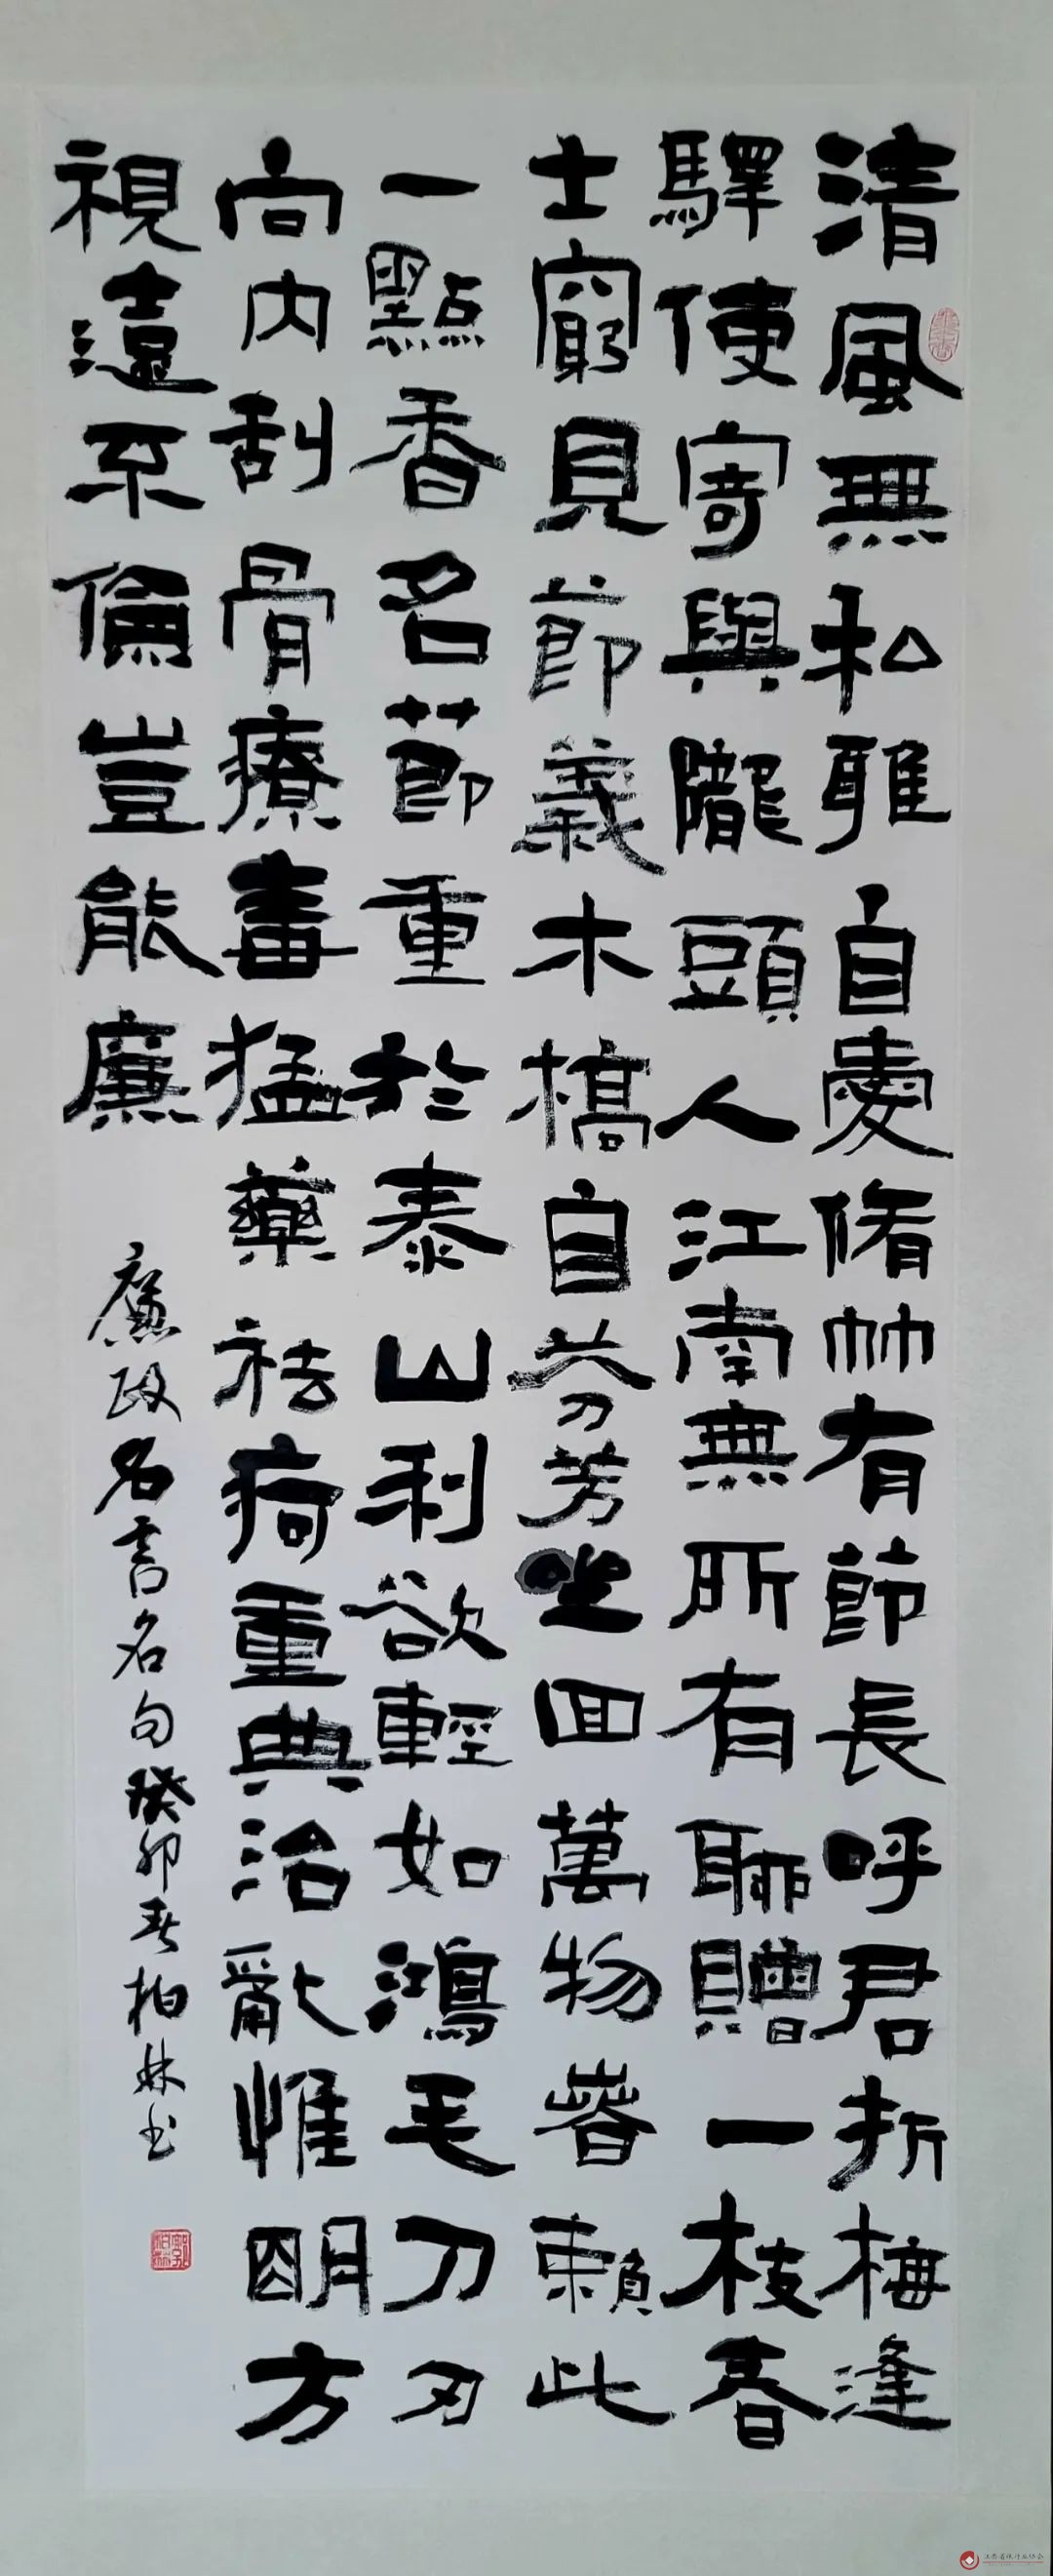 清風無私雅自愛脩竹有節長呼君折梅逢
驛使寄與隴頭人江南無所有聊贈一枝春
士窮見節義木槁自芬芳坐回萬物春賴此
一點香名節重於泰山利欲輕如鴻毛刀刃
向內刮骨療毒猛藥祛疴重典治亂惟明方
視遠不倫豈能廉
廉政名言名句癸卯春柏林书